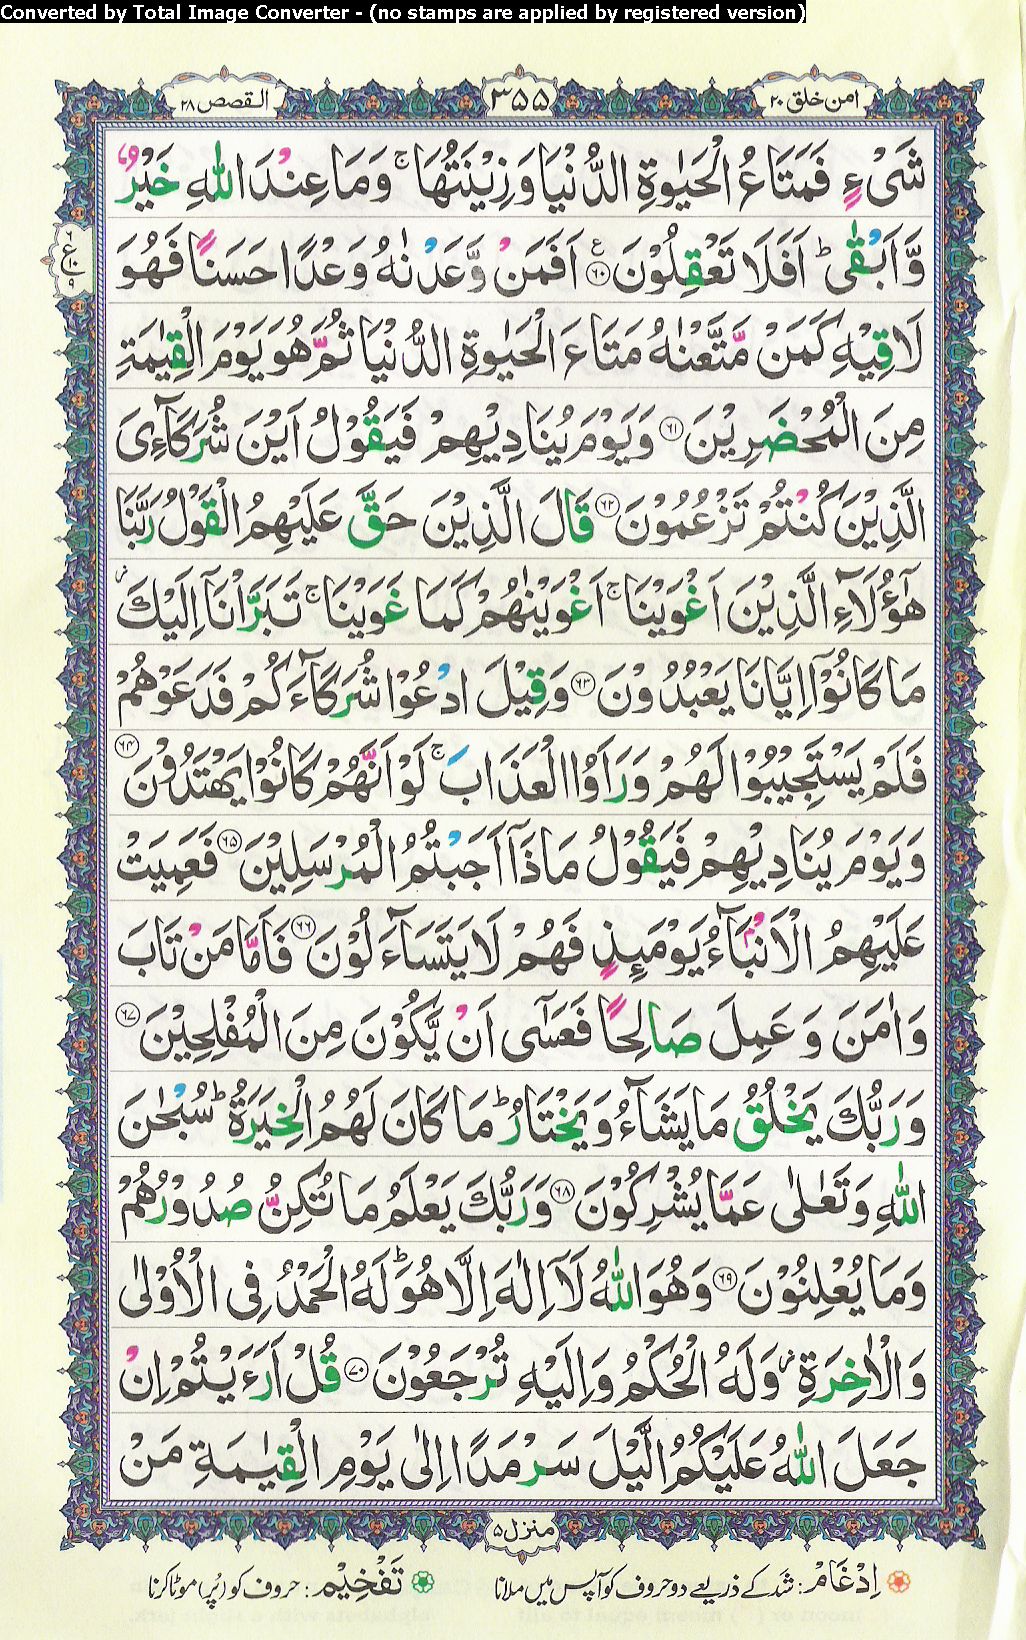 Converted by Total Image Converter - (no stamps are applied by registered version)
امن خلق ۲۰ ۳۵۵ القصص ۲۸
شَیْءٍ فَمَتَاعُ الْحَیٰوةِ الدُّنْیَا وَزِیْنَتُهَا ۚ وَمَا عِنْدَ اللّٰهِ خَیْرٌ
وَّاَبْقٰی ؕ اَفَلَا تَعْقِلُوْنَ ۠﴿۶۰﴾ اَفَمَنْ وَّعَدْنٰهُ وَعْدًا حَسَنًا فَهُوَ
۶ ع ۱۰ ۹
لَاقِیْهِ كَمَنْ مَّتَّعْنٰهُ مَتَاعَ الْحَیٰوةِ الدُّنْیَا ثُمَّ هُوَ یَوْمَ الْقِیٰمَةِ
مِنَ الْمُحْضَرِیْنَ ﴿۶۱﴾ وَیَوْمَ یُنَادِیْهِمْ فَیَقُوْلُ اَیْنَ شُرَكَآءِیَ
الَّذِیْنَ كُنْتُمْ تَزْعُمُوْنَ ﴿۶۲﴾ قَالَ الَّذِیْنَ حَقَّ عَلَیْهِمُ الْقَوْلُ رَبَّنَا
هٰۤؤُلَآءِ الَّذِیْنَ اَغْوَیْنَا ۚ اَغْوَیْنٰهُمْ كَمَا غَوَیْنَا ۚ تَبَرَّاْنَاۤ اِلَیْكَ ؗ
مَا كَانُوْۤا اِیَّانَا یَعْبُدُوْنَ ﴿۶۳﴾ وَقِیْلَ ادْعُوْا شُرَكَآءَكُمْ فَدَعَوْهُمْ
فَلَمْ یَسْتَجِیْبُوْا لَهُمْ وَرَاَوُا الْعَذَابَ ۚ لَوْ اَنَّهُمْ كَانُوْا یَهْتَدُوْنَ ﴿۶۴﴾
وَیَوْمَ یُنَادِیْهِمْ فَیَقُوْلُ مَاذَاۤ اَجَبْتُمُ الْمُرْسَلِیْنَ ﴿۶۵﴾ فَعَمِیَتْ
عَلَیْهِمُ الْاَنْۢبَآءُ یَوْمَىِٕذٍ فَهُمْ لَا یَتَسَآءَلُوْنَ ﴿۶۶﴾ فَاَمَّا مَنْ تَابَ
وَاٰمَنَ وَعَمِلَ صَالِحًا فَعَسٰۤی اَنْ یَّكُوْنَ مِنَ الْمُفْلِحِیْنَ ﴿۶۷﴾
وَرَبُّكَ یَخْلُقُ مَا یَشَآءُ وَیَخْتَارُ ؕ مَا كَانَ لَهُمُ الْخِیَرَةُ ؕ سُبْحٰنَ
اللّٰهِ وَتَعٰلٰی عَمَّا یُشْرِكُوْنَ ﴿۶۸﴾ وَرَبُّكَ یَعْلَمُ مَا تُكِنُّ صُدُوْرُهُمْ
وَمَا یُعْلِنُوْنَ ﴿۶۹﴾ وَهُوَ اللّٰهُ لَاۤ اِلٰهَ اِلَّا هُوَ ؕ لَهُ الْحَمْدُ فِی الْاُوْلٰی
وَالْاٰخِرَةِ ؗ وَلَهُ الْحُكْمُ وَاِلَیْهِ تُرْجَعُوْنَ ﴿۷۰﴾ قُلْ اَرَءَیْتُمْ اِنْ
جَعَلَ اللّٰهُ عَلَیْكُمُ الَّیْلَ سَرْمَدًا اِلٰی یَوْمِ الْقِیٰمَةِ مَنْ
منزل ۵
اِدْغَام: شَد کے ذریعے دو حروف کو آپس میں ملانا تَفْخِیْم: حروف کو (پُر) موٹا کرنا